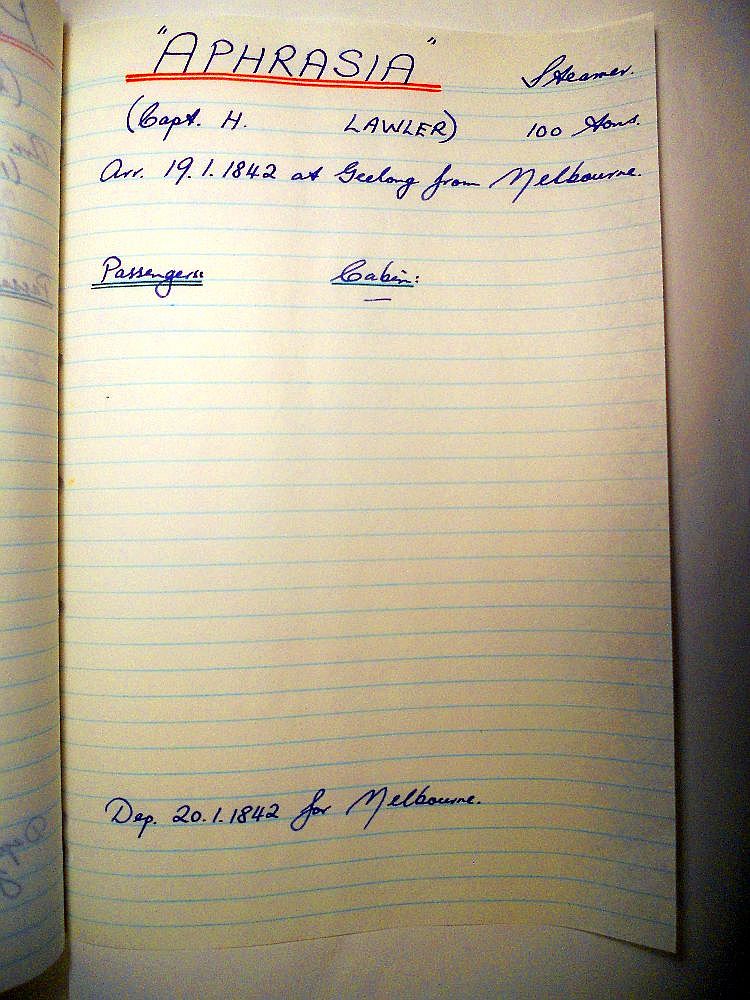 "APHRASIA" Steamer.
(Capt. H. LAWLER) 100 Tons.
Arr. 19.1.1842 at Geelong from Melbourne.
Passengers: Cabin:
—
Dep. 20.1.1842 for Melbourne.